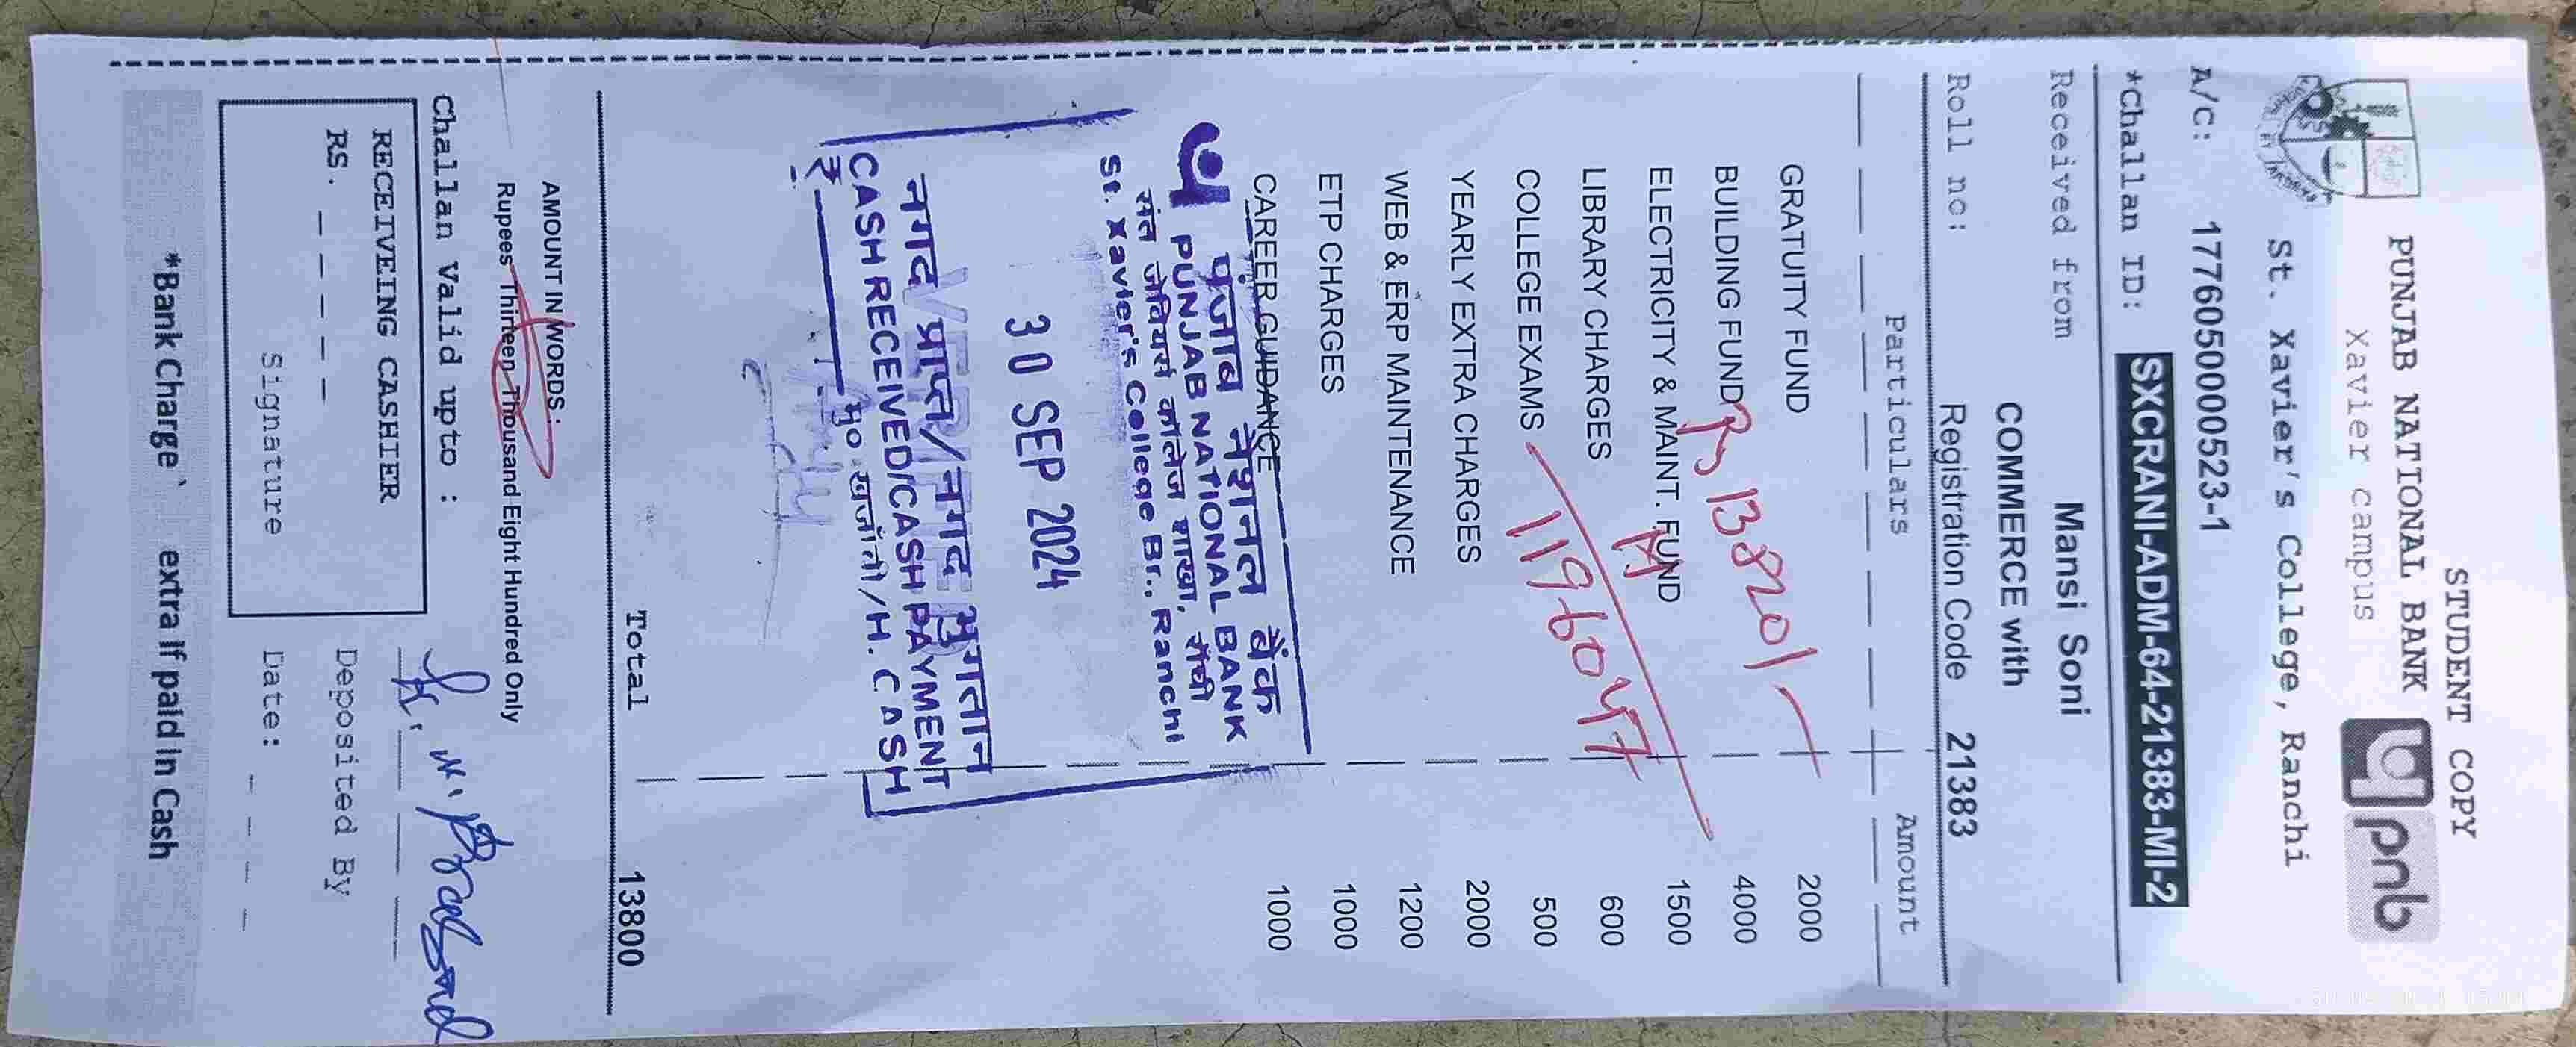 STUDENT COPY
PUNJAB NATIONAL BANK
Xavier campus
pnb
St. Xavier's College, Ranchi
A/C: 1776050000523-1
*Challan ID: SXCRANI-ADM-64-21383-MI-2
Received from Mansi Soni
COMMERCE with
Roll no: Registration Code 21383
Particulars Amount
GRATUITY FUND 2000
BUILDING FUND 4000
Rs 13820/-
ELECTRICITY & MAINT. FUND 1500
LIBRARY CHARGES 600
COLLEGE EXAMS 500
1196047
YEARLY EXTRA CHARGES 2000
WEB & ERP MAINTENANCE 1200
ETP CHARGES 1000
CAREER GUIDANCE 1000
पंजाब नैशनल बैंक
PUNJAB NATIONAL BANK
संत जेवियर्स कॉलेज शाखा, राँची
St. Xavier's College Br., Ranchi
30 SEP 2024
VERIFIED
नगद प्राप्त/नगद भुगतान
CASH RECEIVED/CASH PAYMENT
मु० खजाँची/H. CASH
Total 13800
AMOUNT IN WORDS:
Rupees Thirteen Thousand Eight Hundred Only
Challan Valid upto :
RECEIVING CASHIER
RS. _ _ _ _ _
Signature
Deposited By
Date: _ _ _ _
*Bank Charge ` extra If paid in Cash